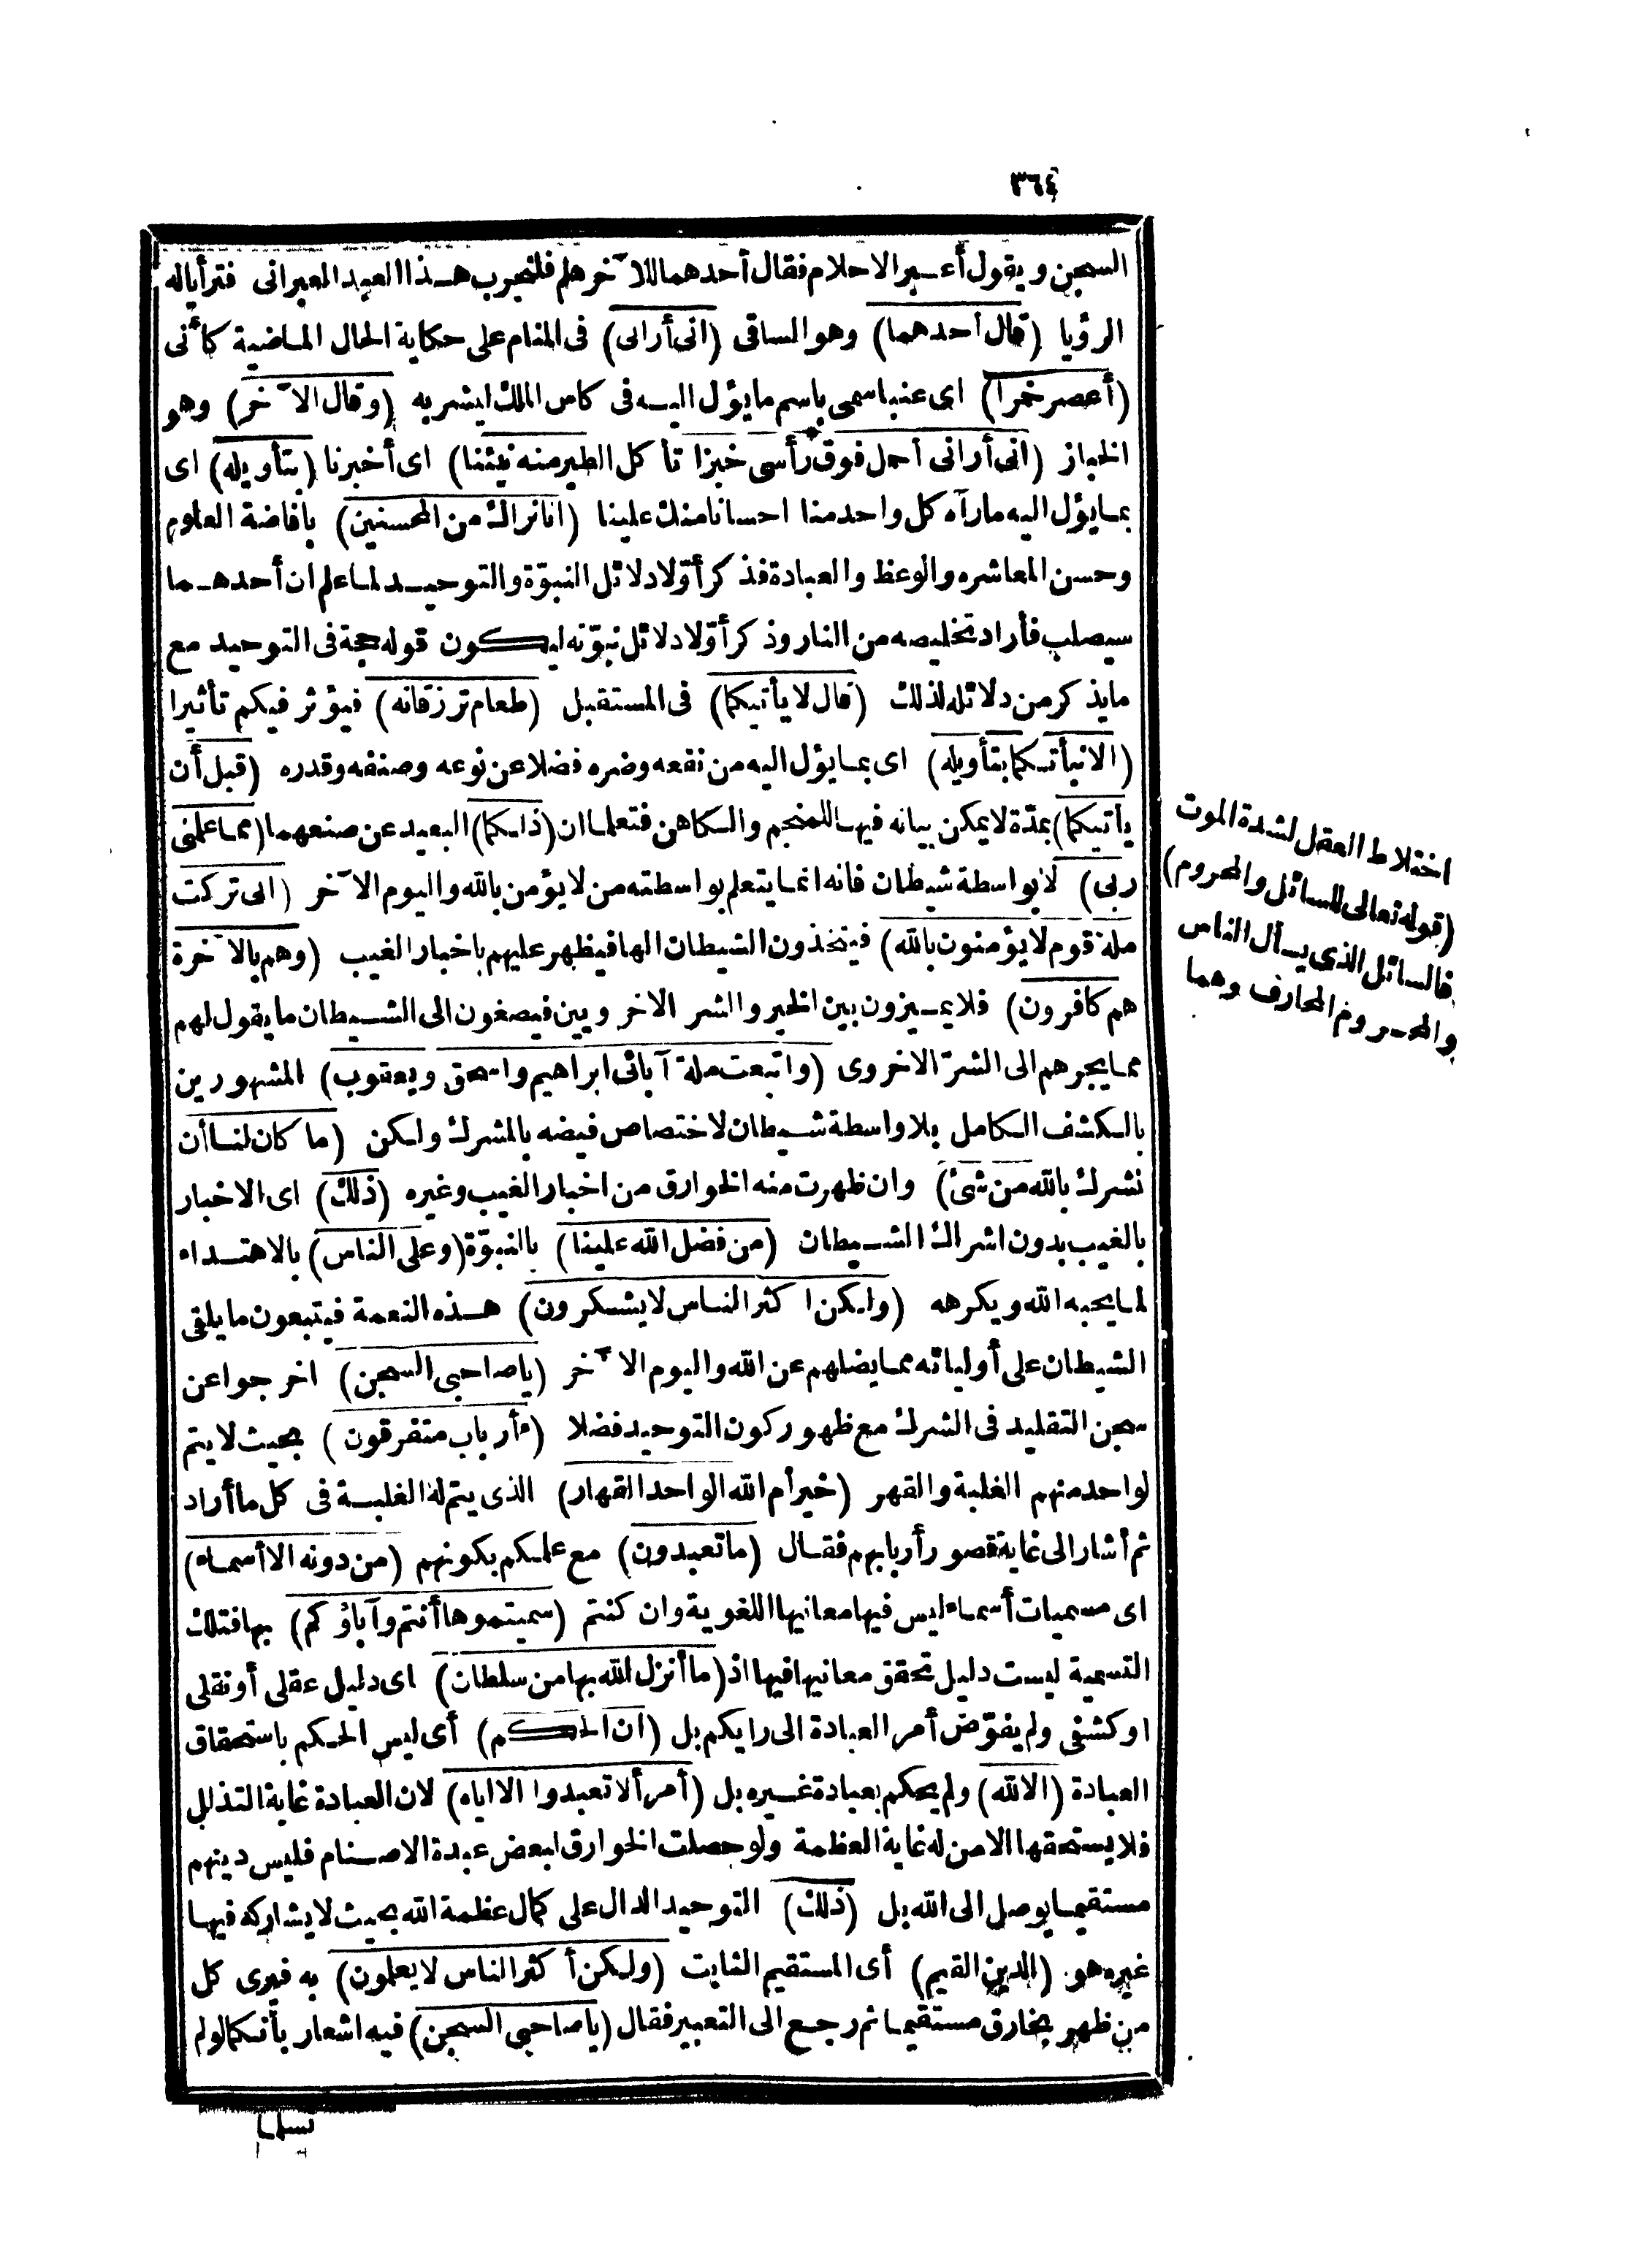 ٣٦٤
السجن ويقول أعبر الاحلام فقال أحدهما للآخر هلم فلنجرب هذا العبد العبراني فتراياله
الرؤيا (قال أحدهما) وهو الساقى (انى أرانى) فى المنام على حكاية الحال الماضية كأنى
(أعصر خمرا) اى عنبا سمى باسم ما يؤل اليه فى كاس الملك ليشربه (وقال الآخر) وهو
الخباز (انى أرانى أحمل فوق رأسى خبزا تأكل الطير منه نبئنا) اى أخبرنا (بتأويله) اى
بما يؤل اليه ما رآه كل واحد منا احسانا منك علينا (انا نراك من المحسنين) بافاضة العلوم
وحسن المعاشره والوعظ والعبادة فذكر أوّلا دلائل النبوّة والتوحيد لما علم ان أحدهما
سيصلب فأراد تخليصه من النار وذكر أوّلا دلائل نبوّته ليكون قوله حجة فى التوحيد مع
ما يذكر من دلائله لذلك (قال لا يأتيكما) فى المستقبل (طعام ترزقانه) فيؤثر فيكم تأثيرا
(الا نبأتكما بتأويله) اى بما يؤل اليه من نفعه وضره فضلا عن نوعه وصنفه وقدره (قبل أن
يأتيكما) بمدّة لا يمكن بيانه فيها للمنجم والكاهن فتعلما ان (ذلكما) البعيد عن صنعهما (مما علمنى
ربى) لا بواسطة شيطان فانه انما يتعلم بواسطته من لا يؤمن بالله واليوم الآخر (انى تركت
ملة قوم لا يؤمنون بالله) فيتخذون الشيطان الها فيظهر عليهم باخبار الغيب (وهم بالآخرة
هم كافرون) فلا يميزون بين الخير والشر الاخرويين فيصغون الى الشيطان ما يقول لهم
مما يجرهم الى الشرّ الاخروى (واتبعت ملة آبائى ابراهيم واسحق ويعقوب) المشهورين
بالكشف الكامل بلا واسطة شيطان لاختصاص فيضه بالمشرك ولكن (ما كان لنا أن
نشرك بالله من شئ) وان ظهرت منه الخوارق من اخبار الغيب وغيره (ذلك) اى الاخبار
بالغيب بدون اشراك الشيطان (من فضل الله علينا) بالنبوّة (وعلى الناس) بالاهتداء
لما يحبه الله ويكرهه (ولكن اكثر الناس لا يشكرون) هذه النعمة فيتبعون ما يلقى
الشيطان على أوليائه مما يضلهم عن الله واليوم الآخر (يا صاحبى السجن) اخرجوا عن
سجن التقليد فى الشرك مع ظهور كون التوحيد فضلا (ءأرباب متفرقون) بحيث لا يتم
لواحد منهم الغلبة والقهر (خير أم الله الواحد القهار) الذى يتم له الغلبة فى كل ما أراد
ثم أشار الى غاية قصور أربابهم فقال (ما تعبدون) مع علمكم بكونهم (من دونه الا أسماء)
اى مسميات أسماء ليس فيها معانيها اللغوية وان كنتم (سميتموها أنتم وآباؤكم) بها فتلك
التسمية ليست دليل تحقق معانيها فيها اذ (ما أنزل الله بها من سلطان) اى دليل عقلى أو نقلى
او كشفى ولم يفوّض أمر العبادة الى رايكم بل (ان الحكم) أى ليس الحكم باستحقاق
العبادة (الا لله) ولم يحكم بعبادة غيره بل (أمر ألا تعبدوا الا اياه) لان العبادة غاية التذلل
فلا يستحقها الا من له غاية العظمة ولو حصلت الخوارق لبعض عبدة الاصنام فليس دينهم
مستقيما يوصل الى الله بل (ذلك) التوحيد الدال على كمال عظمة الله بحيث لا يشاركه فيها
غيره هو (الدين القيم) أى المستقيم الثابت (ولكن أكثر الناس لا يعلمون) به فيرى كل
من ظهر بخارق مستقيما ثم رجع الى التعبير فقال (يا صاحبى السجن) فيه اشعار بأنكما لو لم
تسلما
اختلاط العقل لشدة الموت
(قوله تعالى للسائل والمحروم)
فالسائل الذى يسأل الناس
والمحروم المحارف وهما